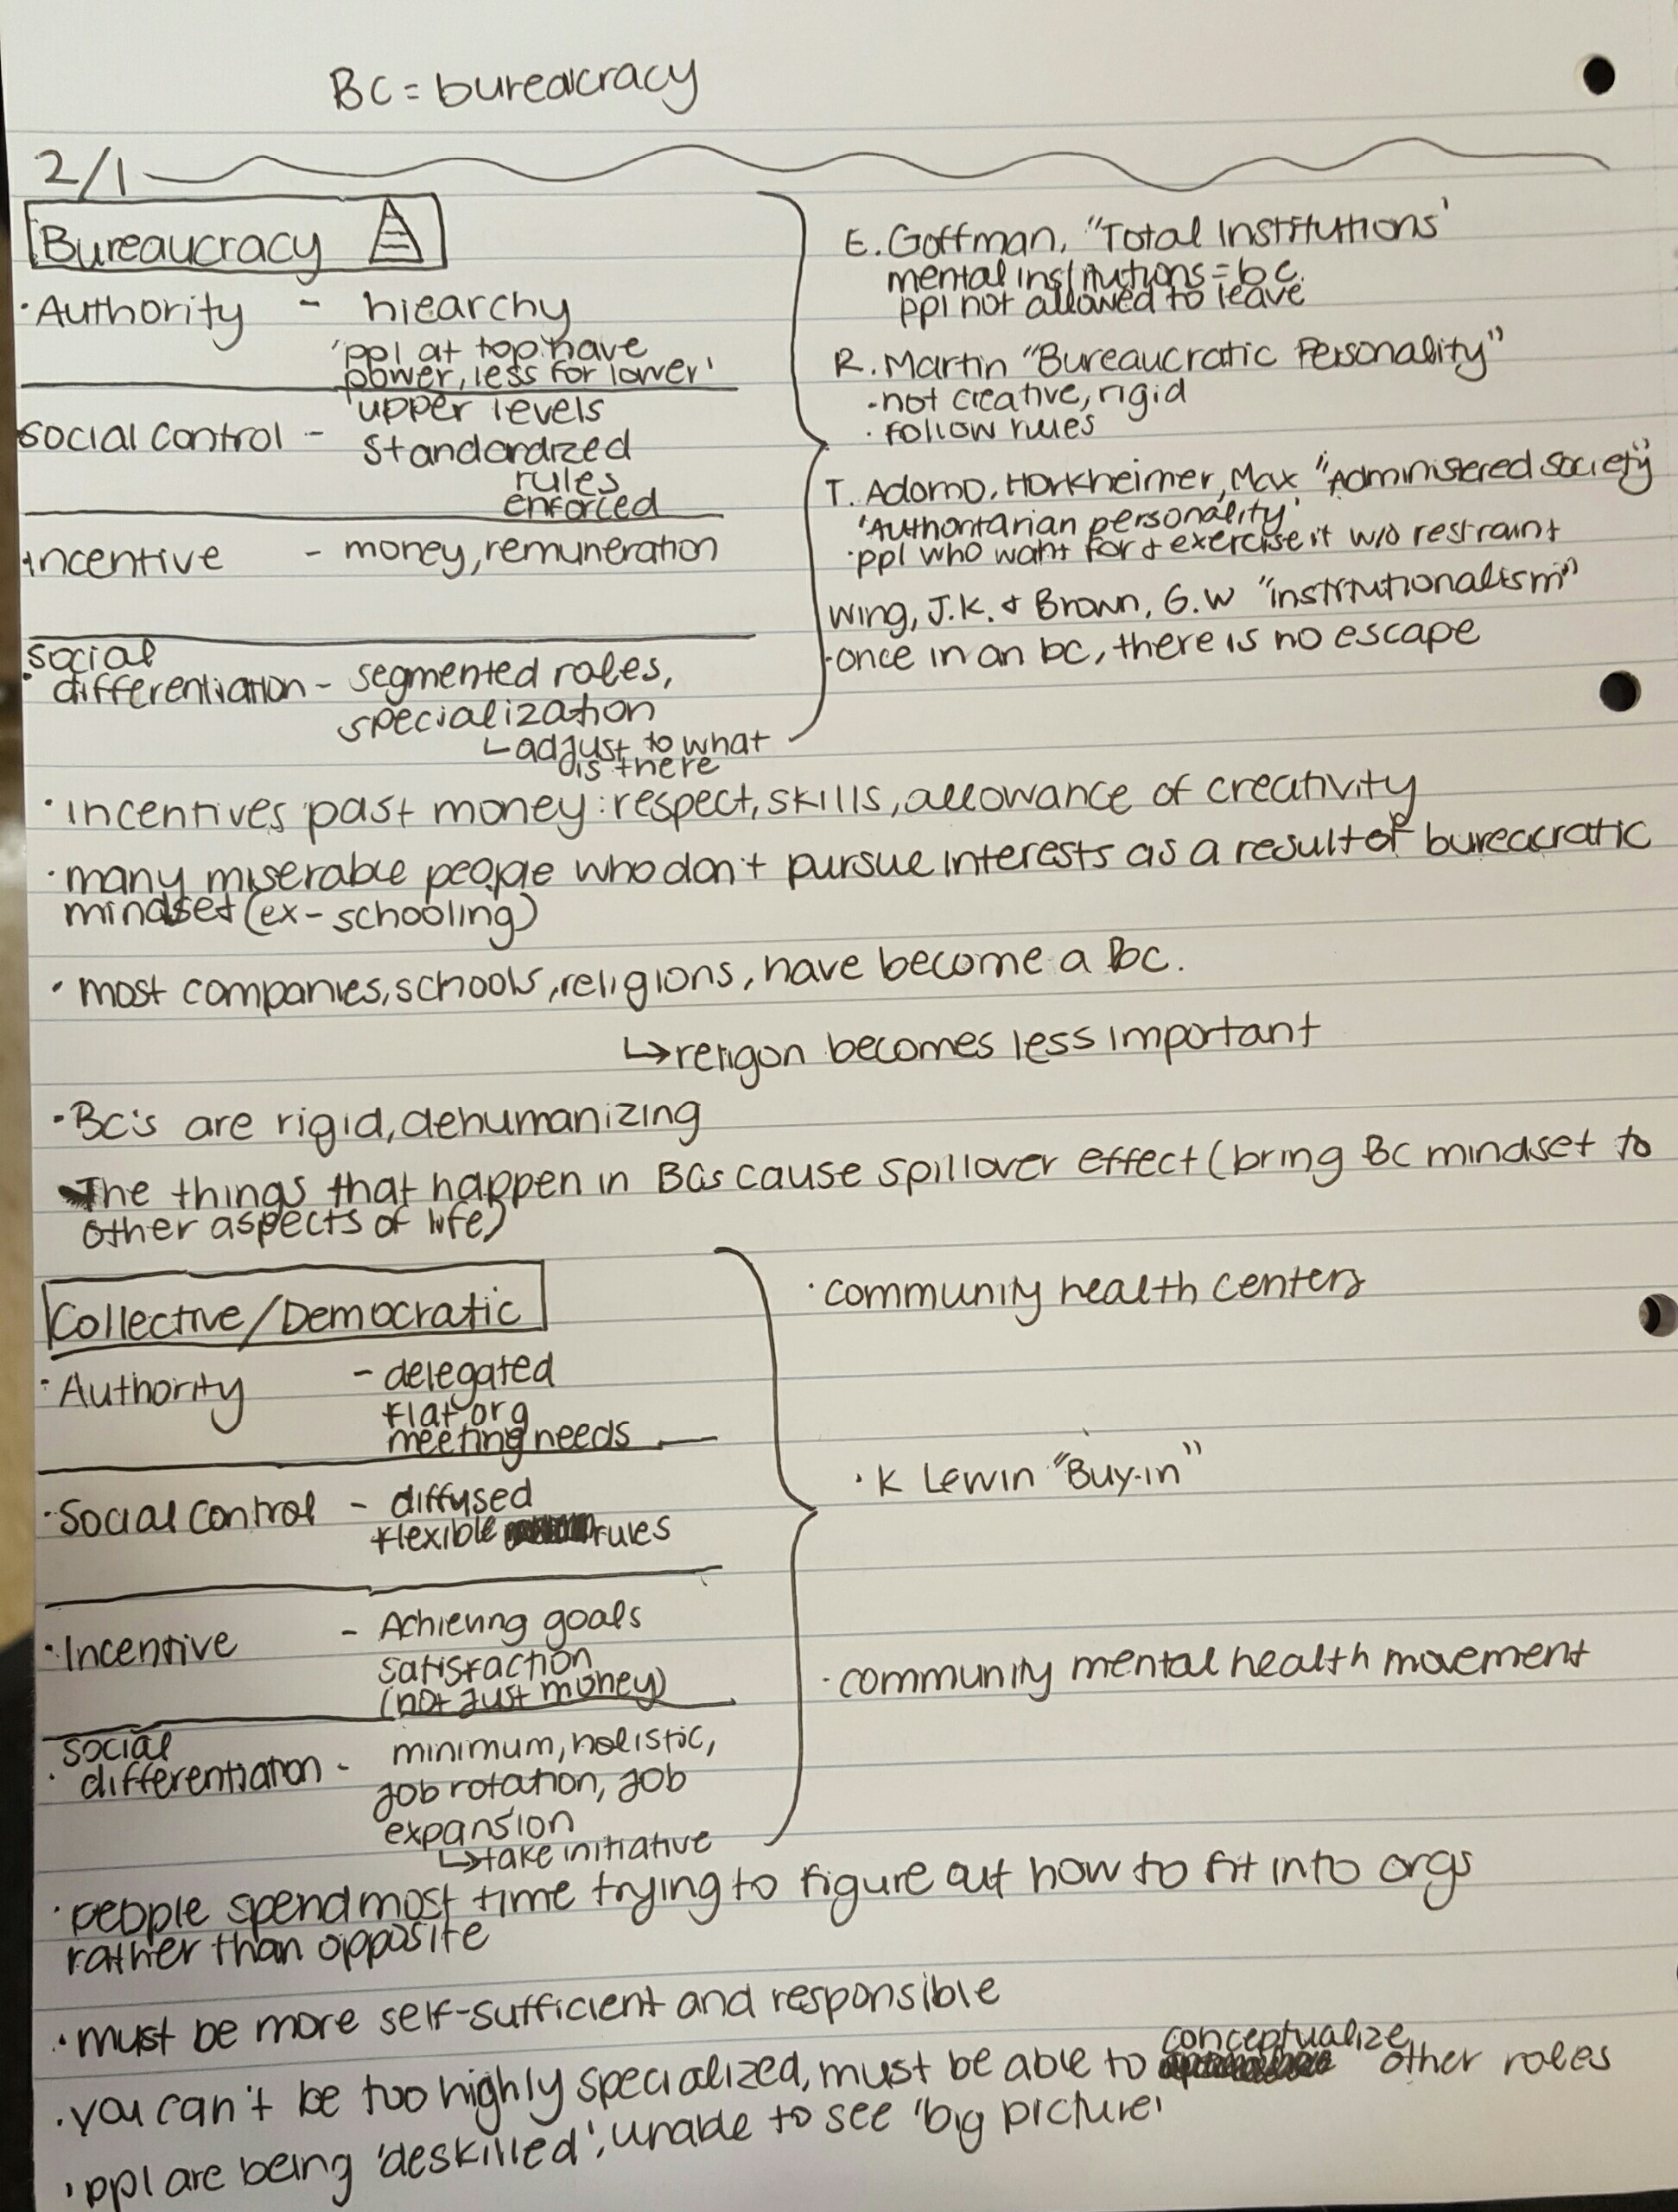 BC = bureacracy
2/1
Bureaucracy
·Authority - hiearchy
'ppl at top have
power, less for lower'
'upper levels
social control - standardized
rules
enforced
incentive - money, remuneration
social
· differentiation - segmented roles,
specialization
adjust to what
is there
E. Goffman, "Total Institutions'
mental institutions = bc.
ppl not allowed to leave
R. Martin "Bureaucratic Personality"
·not creative, rigid
· follow rules
T. Adorno, Horkheimer, Max "Administered Society"
'Authoritarian personality'
·ppl who want for & exercise it w/o restraint
Wing, J.K. & Brown, G.W "institutionalism"
·once in an bc, there is no escape
· incentives past money: respect, skills, allowance of creativity
· many miserable people who don't pursue interests as a result of bureacratic
mindset (ex- schooling)
· most companies, schools, religions, have become a bc.
↳religon becomes less important
·BC's are rigid, dehumanizing
The things that happen in BCs cause spillover effect (bring BC mindset to
other aspects of life)
Collective/Democratic
· Authority - delegated
flat org
meeting needs
· Social Control - diffused
flexible rules
· Incentive - Achieving goals
satisfaction
(not just money)
social
· differentiation - minimum, holistic,
job rotation, job
expansion
↳take initiative
· community health centers
· K Lewin "Buy-in"
· community mental health movement
· people spend most time trying to figure out how to fit into orgs
rather than opposite
· must be more self-sufficient and responsible
· you can't be too highly specialized, must be able to conceptualize other roles
· ppl are being 'deskilled', unable to see 'big picture'